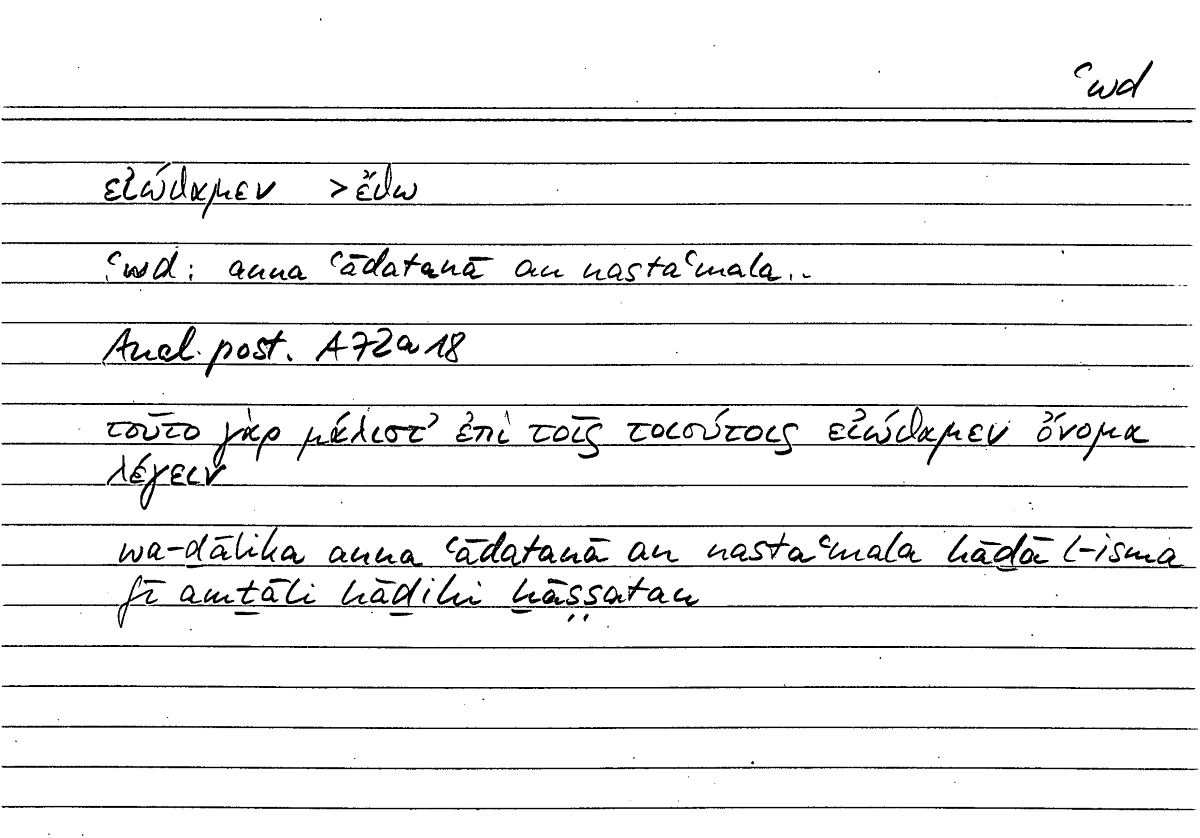 ʿwd
εἰώθαμεν > ἔθω
ʿwd: anna ʿādatanā an nastaʿmala..
Anal. post. A 72a 18
τοῦτο γὰρ μάλιστ' ἐπὶ τοῖς τοιούτοις εἰώθαμεν ὄνομα
λέγειν
wa-ḏālika anna ʿādatanā an nastaʿmala hāḏā l-isma
fī amṯāli hāḏihi ḫāṣṣatan